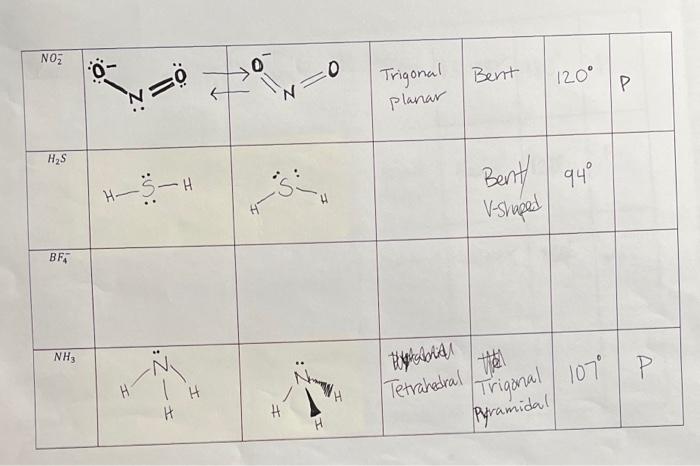 NO₂⁻
:Ö⁻ N̤ =Ö:
O⁻ N O
Trigonal
planar
Bent
120°
P
H₂S
H-S̤̈-H
H S̈ H
Bent/
V-shaped
94°
BF₄⁻
NH₃
N̈
H H
H
N̈
H H
H
Tetrahedral
Trigonal
Pyramidal
107°
P